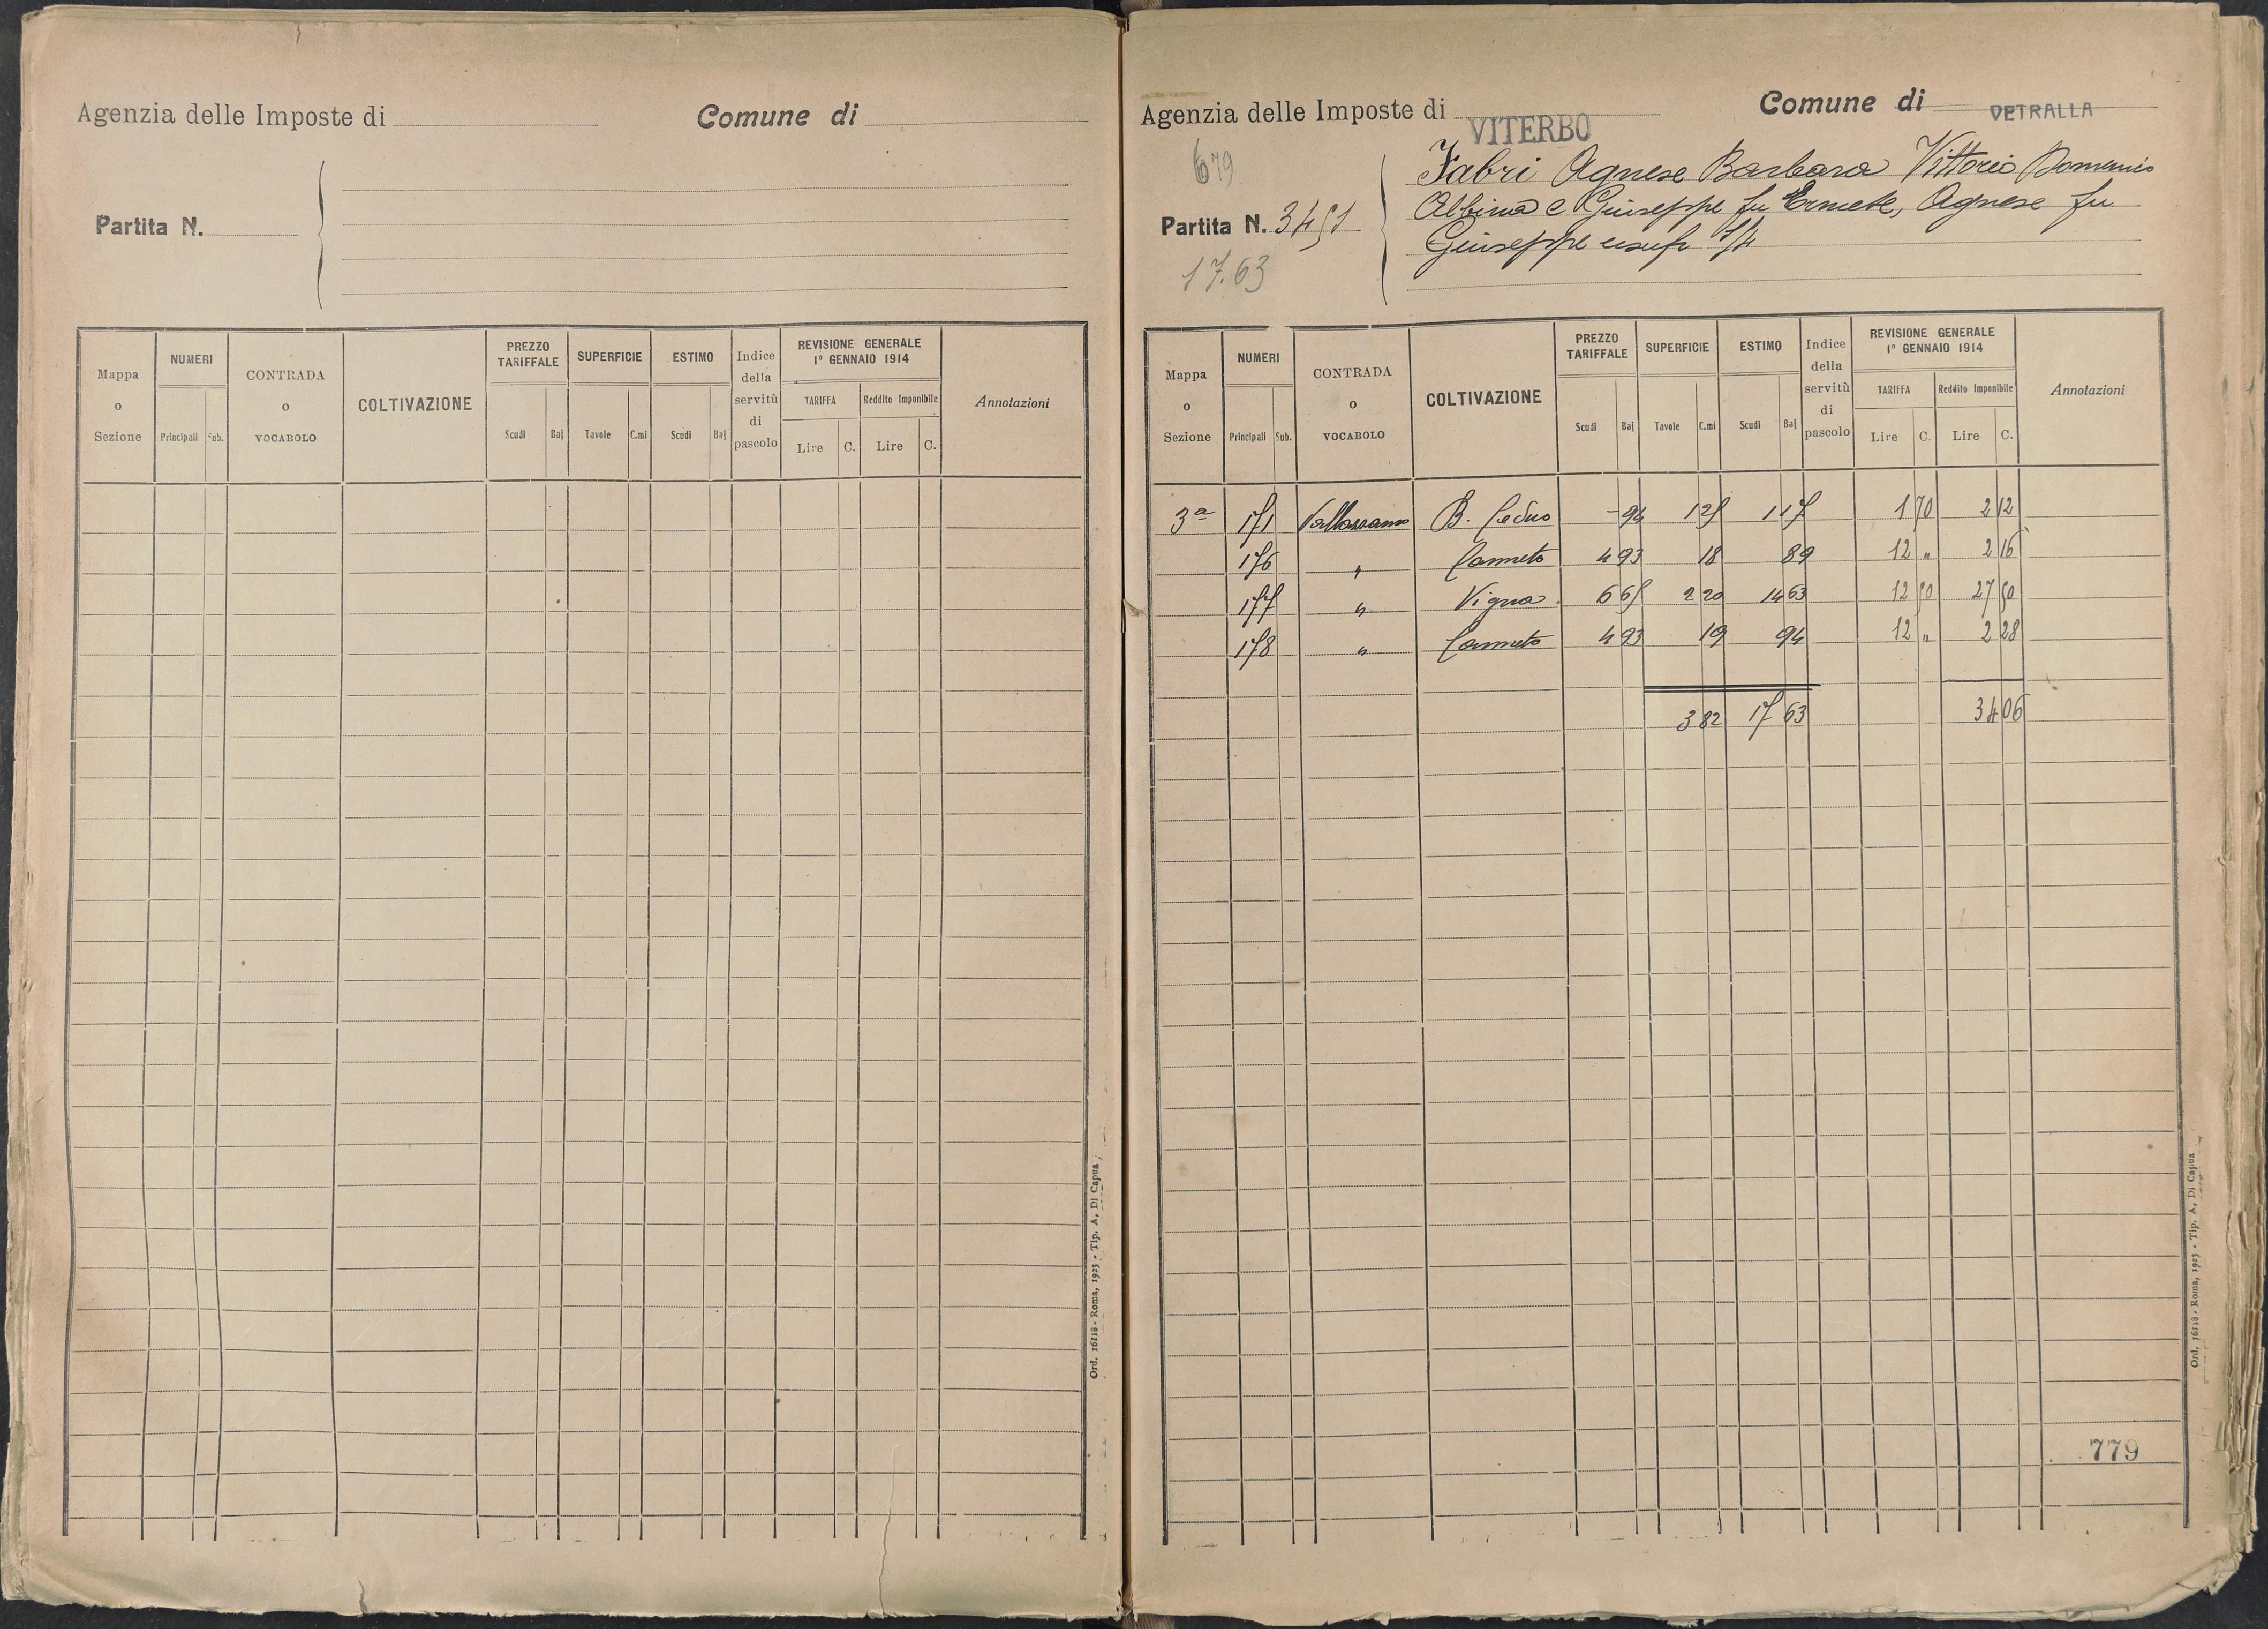 Agenzia delle Imposte di
Comune di
Partita N.
Mappa o Sezione
NUMERI
Principali Sub.
CONTRADA o VOCABOLO
COLTIVAZIONE
PREZZO TARIFFALE
Scudi Baj
SUPERFICIE
Tavole C.mi
ESTIMO
Scudi Baj
Indice della servitù di pascolo
REVISIONE GENERALE
1° GENNAIO 1914
TARIFFA
Lire C.
Reddito Imponibile
Lire C.
Annotazioni
Ord. 16118 - Roma, 1923 - Tip. A. Di Capua
Agenzia delle Imposte di VITERBO
Comune di VETRALLA
679
Fabri Agnese Barbara Vittorio Domenico
Albina e Giuseppe fu Ermete, Agnese fu
Giuseppe usuf 1/4
Partita N. 3451
17.63
Mappa o Sezione
NUMERI
Principali Sub.
CONTRADA o VOCABOLO
COLTIVAZIONE
PREZZO TARIFFALE
Scudi Baj
SUPERFICIE
Tavole C.mi
ESTIMO
Scudi Baj
Indice della servitù di pascolo
REVISIONE GENERALE
1° GENNAIO 1914
TARIFFA
Lire C.
Reddito Imponibile
Lire C.
Annotazioni
3ª 171 B. Ceduo - 94 1 25 1 17 1 70 2 12
176 " Canneto 4 93 18 89 12 " 2 16
177 " Vigna 6 65 2 20 14 63 12 50 27 50
178 " Canneto 4 93 19 94 12 " 2 28
3 82 17 63 34 06
779
Ord. 16118 - Roma, 1923 - Tip. A. Di Capua